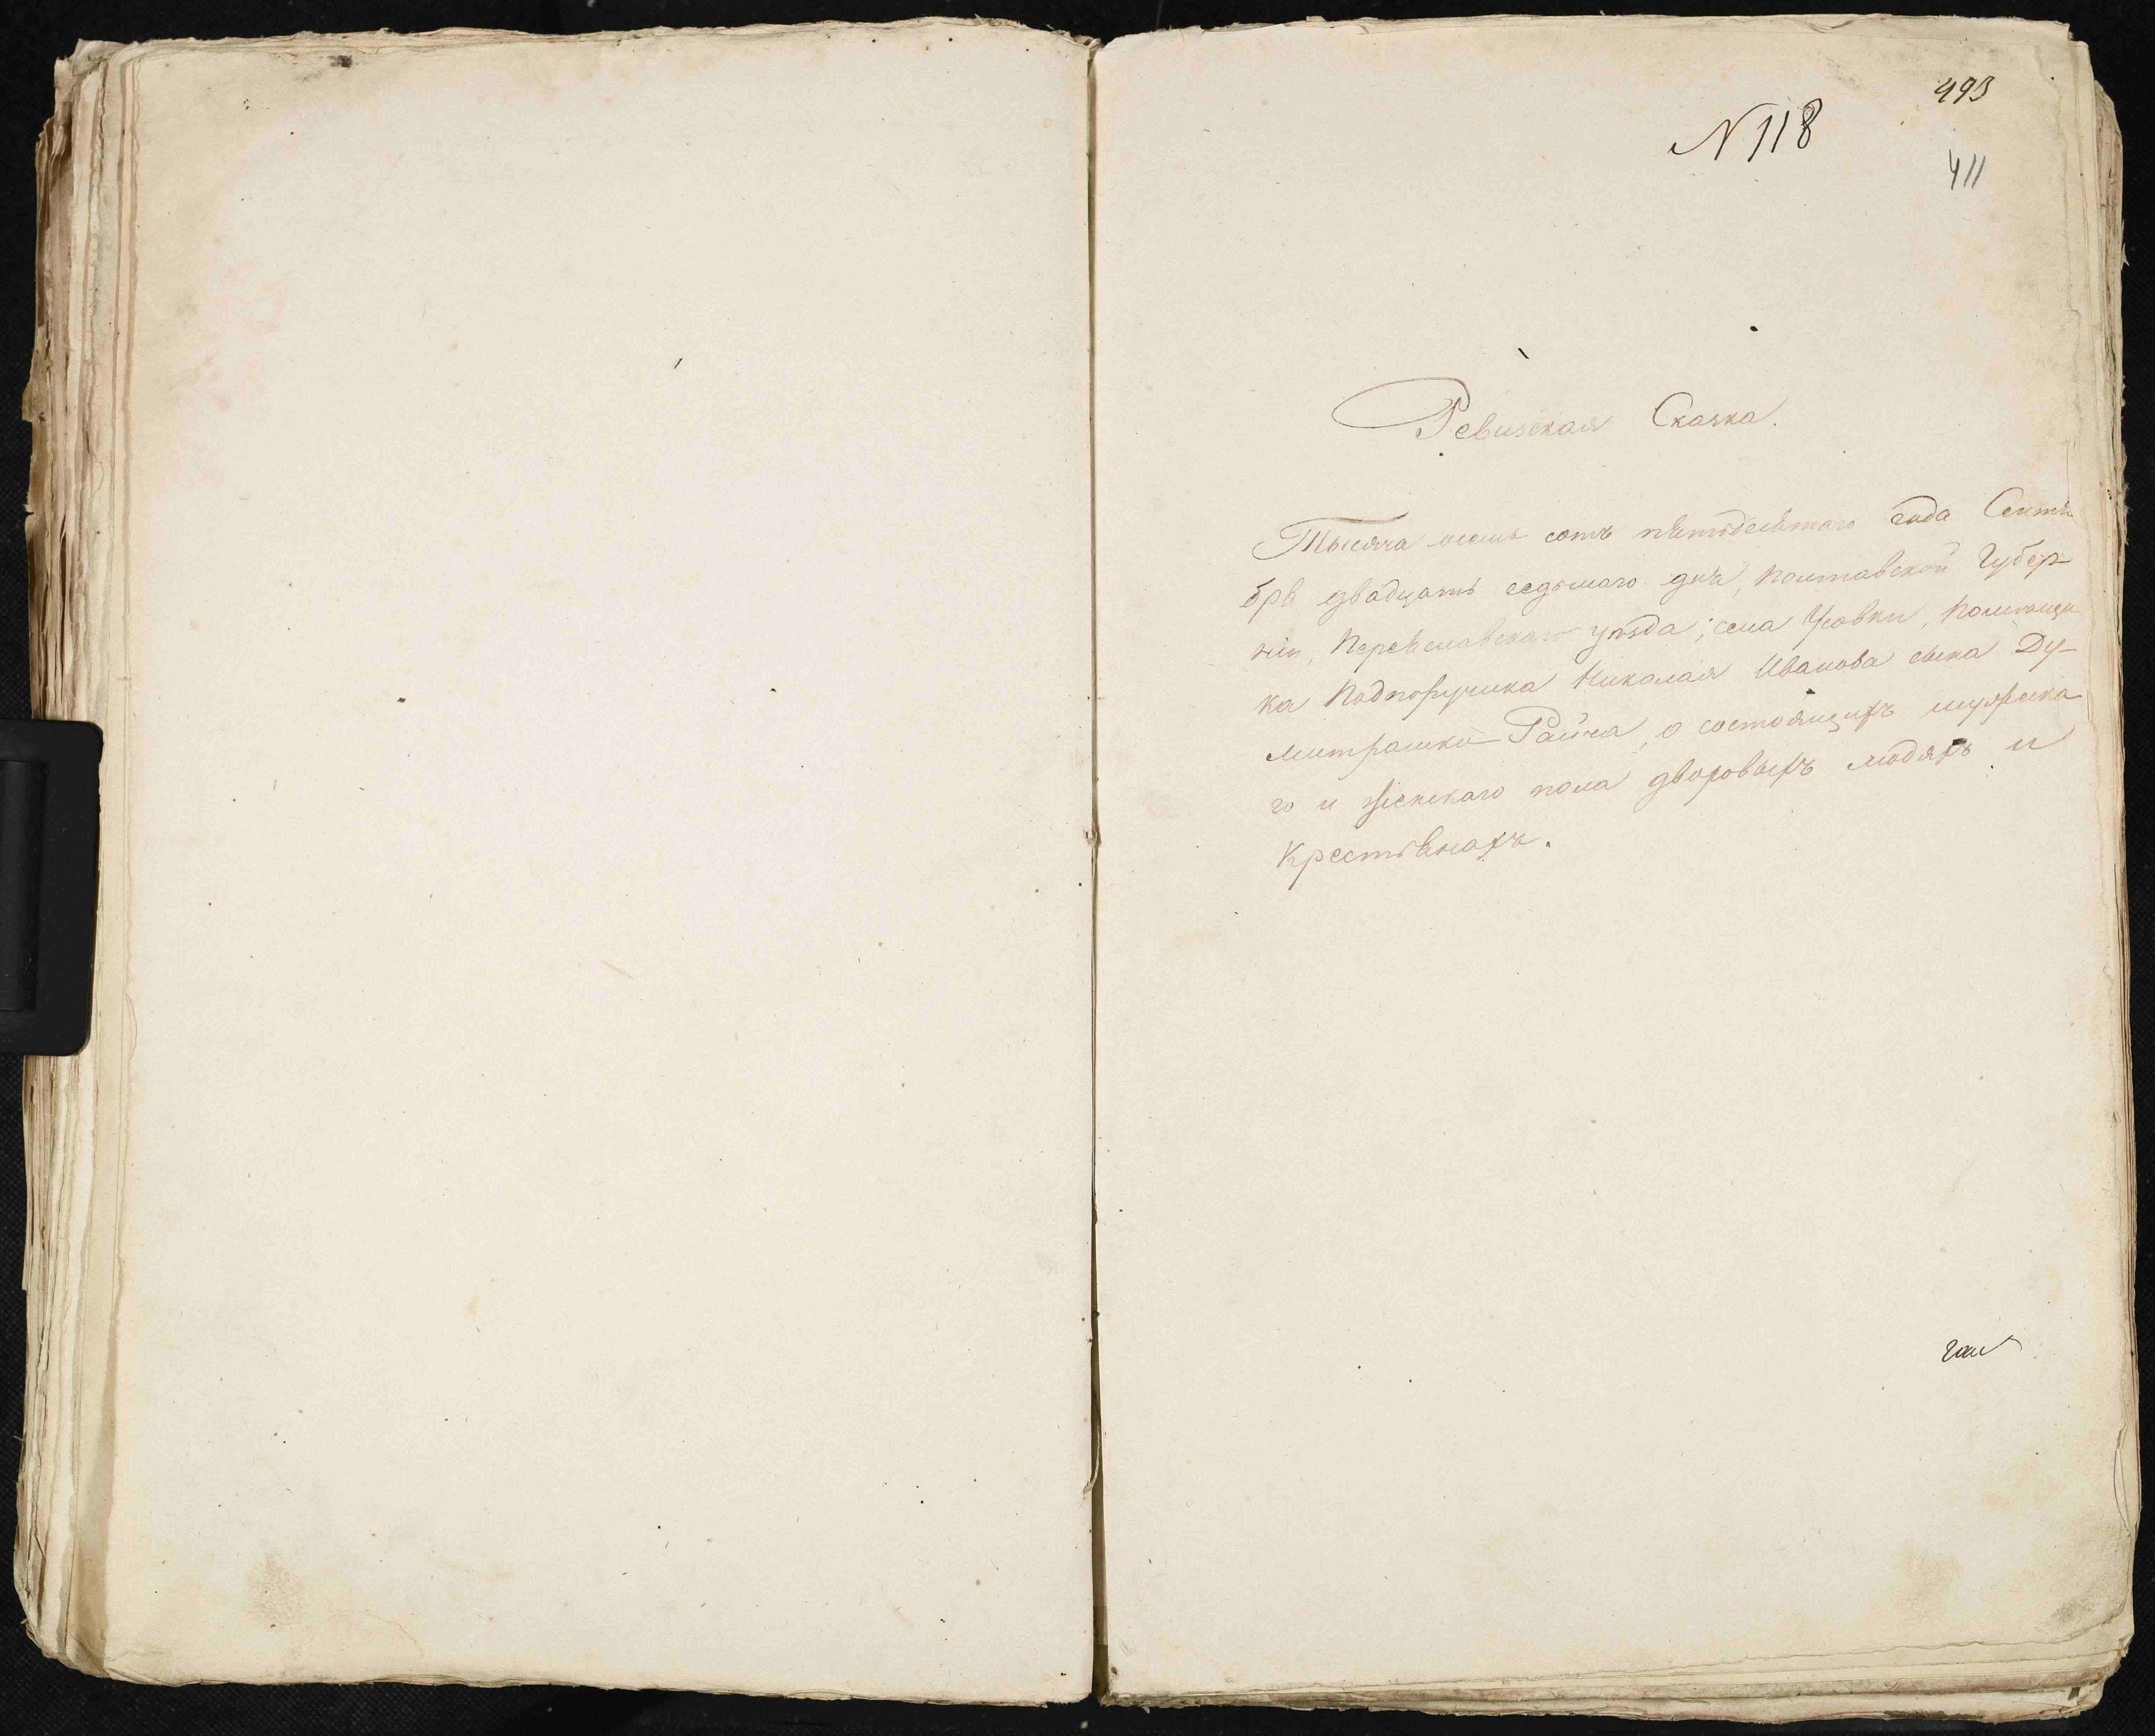 493
N 118
411
Ревизская Сказка.
Тысяча восемь сотъ пятьдесятаго года Сентя
бря двадцать седьмаго дня, Полтавской Губер-
ніи, Переяславскаго уѣзда; села Усовки, помѣщи-
ка Подпоручика Николая Иванова сына Ду-
митрашки-Райча, о состоящихъ мужеска-
го и женскаго пола дворовыхъ людяхъ и
крестьянахъ.